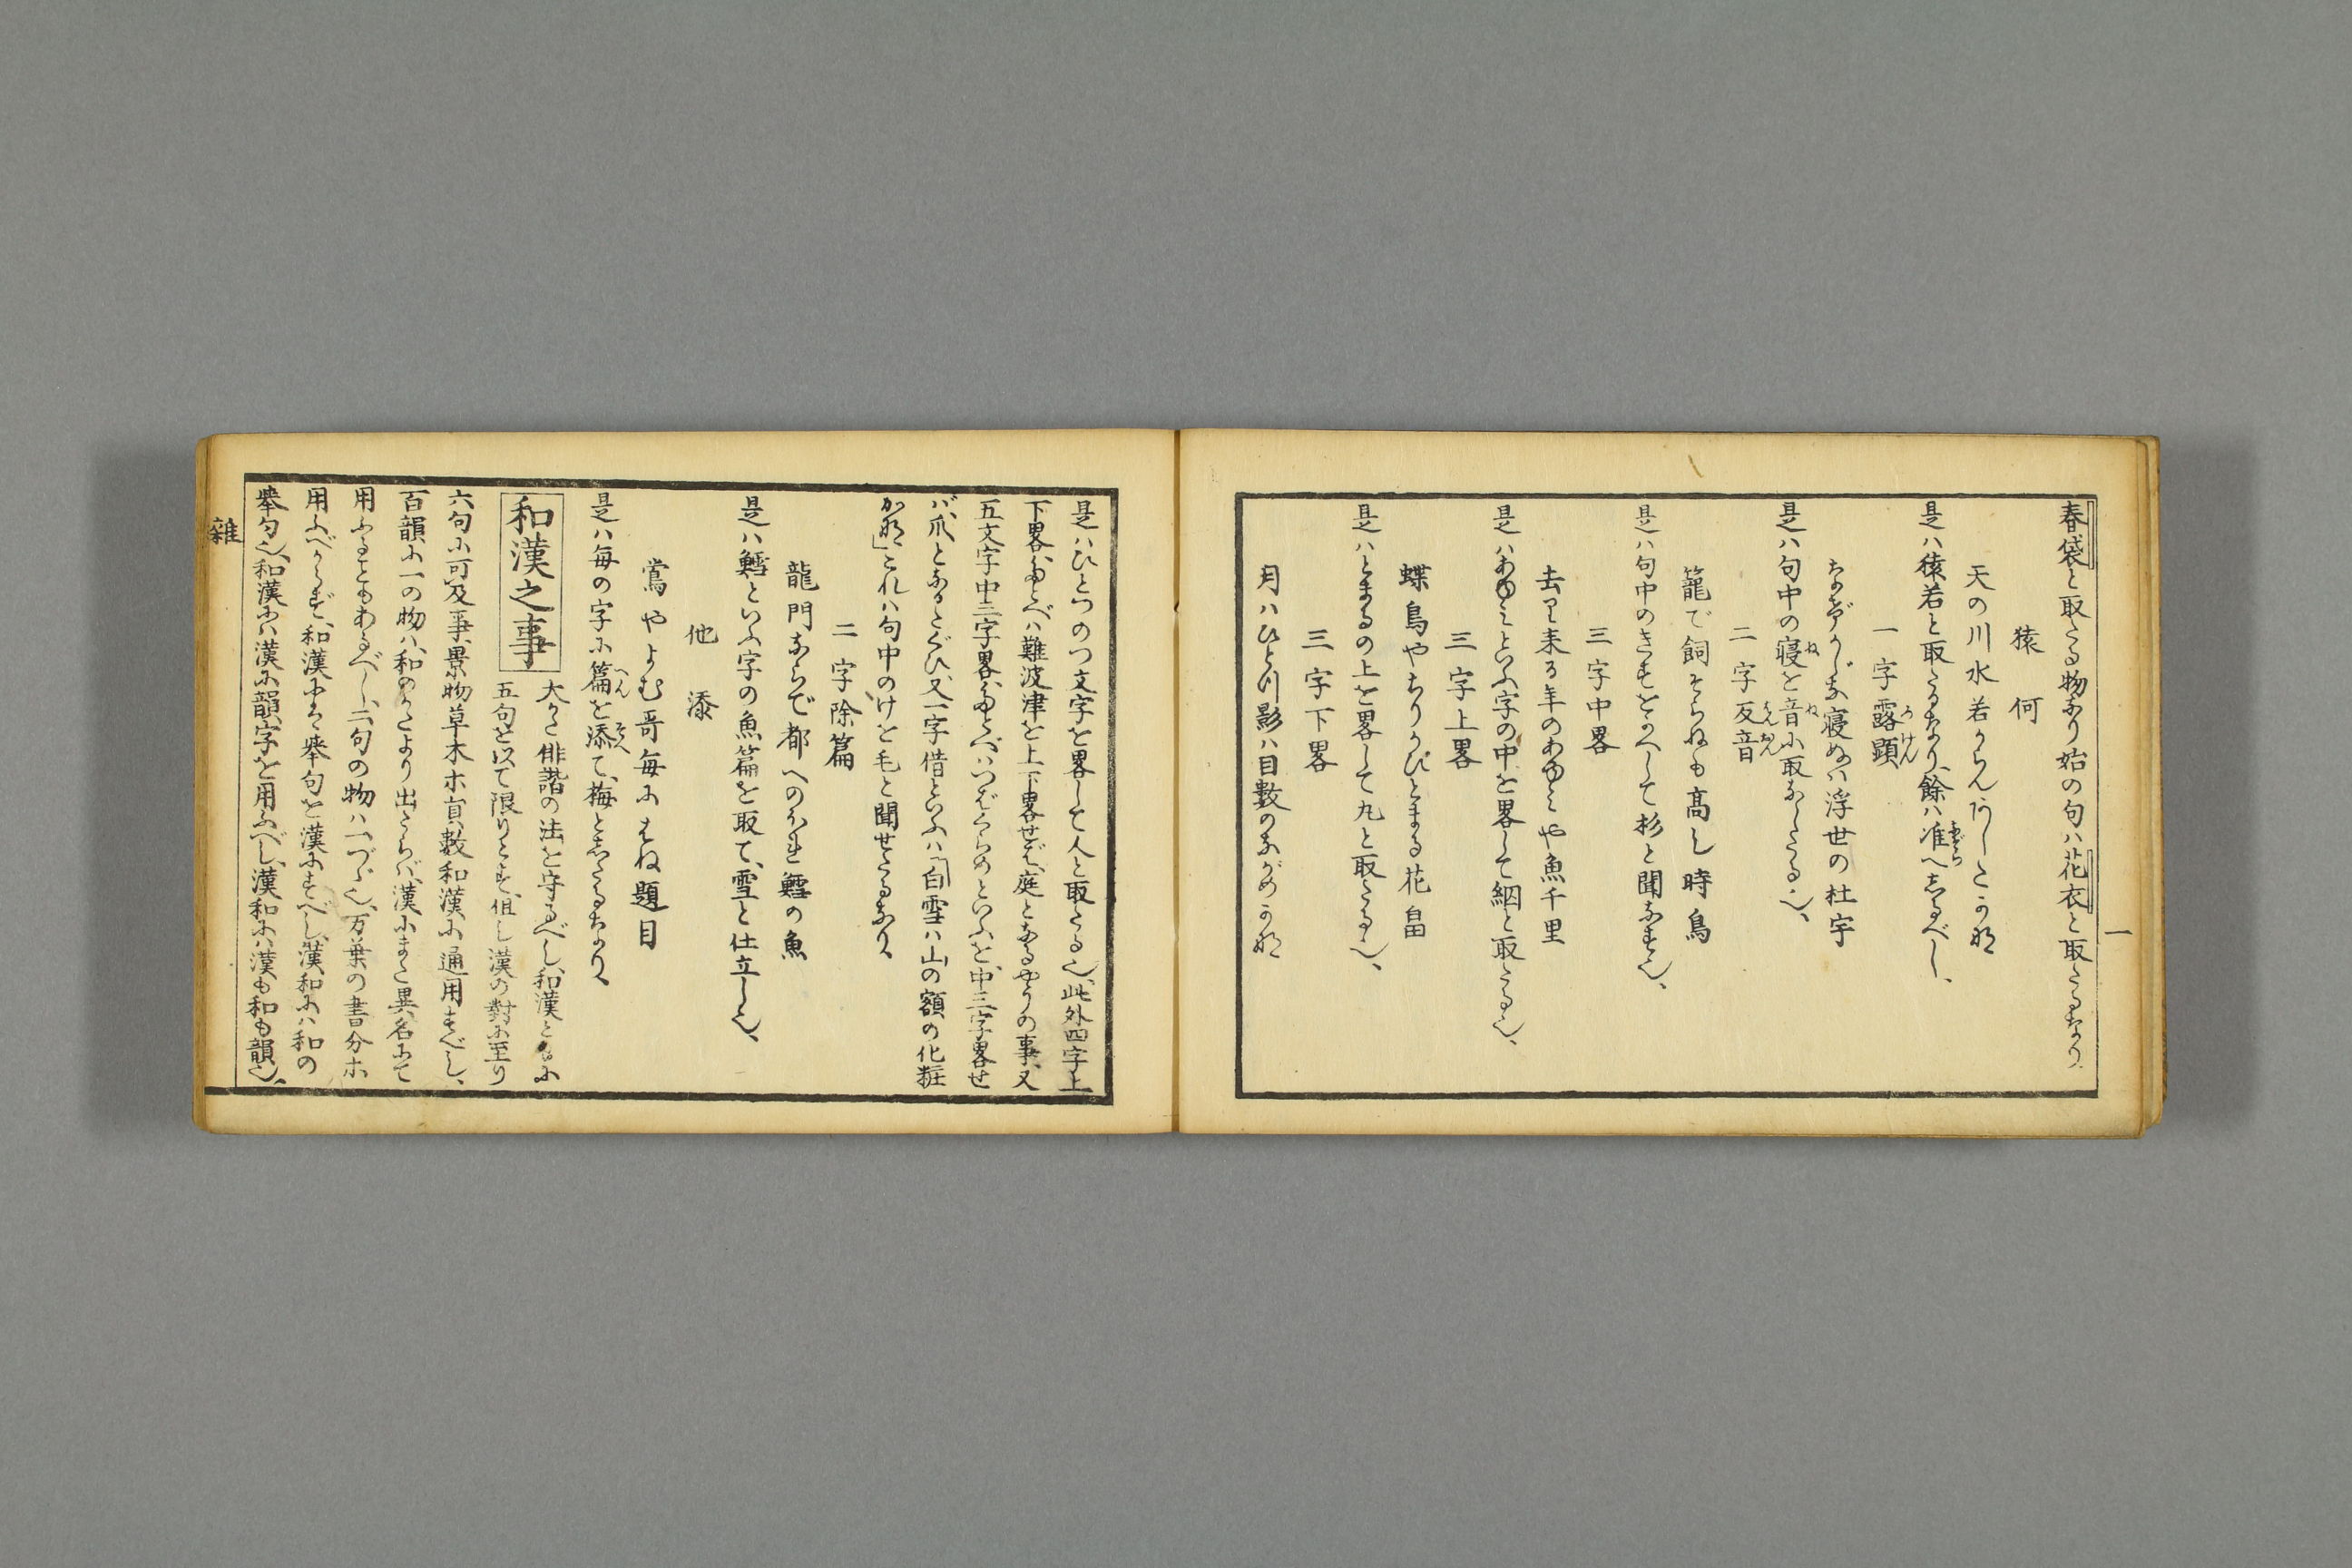 春袋と取たる物なり始の句ハ花衣と取たるなり
猿何
天の川水若からんあしたかな
是ハ猿若と取たるなり、餘ハ准へしるべし、
一字露顕
ながらじな寝ぬハ浮世の杜宇
是ハ句中の寝を音に取なしたる也、
二字反音
籠で飼そらねも高し時鳥
是ハ句中のきすをかへして杉と聞なす也、
三字中畧
去り来る年のあゆミや魚千里
是ハあゆミといふ字の中を畧して網と取たる也、
三字上畧
蝶鳥やちりかひとまる花畠
是ハとまるの上を畧して丸と取たる也、
三字下畧
月ハひとり影ハ目数のながめかな
一
是ハひとつのつ文字を畧して人と取たる也、此外四字上
下畧、たとへバ難波津を上下畧せば、庭となるやうの事、又
五文字中三字畧、たとへバつばくらめといふを、中三字畧せ
バ、爪となるたぐひ、又一字借といふハ「白雪ハ山の額の化粧
かな」これハ句中のけを毛と聞せたるなり、
二字除篇
龍門ならで都へのぼれ鱈の魚
是ハ鱈といふ字の魚篇を取て、雪と仕立し也、
他添
鴬やよむ哥毎にはね題目
是ハ毎の字に篇を添て、梅としたるなり、
和漢之事
大かた俳諧の法を守るべし、和漢ともに
五句を以て限りとす、但し漢の對に至り
六句に可及事、景物草木ホ員數和漢に通用すべし、
百韻に一の物ハ、和のかたより出たらバ、漢にまた異名にて
用ふることもあるべし、二句の物ハ一づゝ也、万葉の書分ホ
用ふべからず、和漢にハ挙句を漢にすべし、漢和にハ和の
挙句也、和漢にハ漢に韻字を用ふべし、漢和にハ漢も和も韻也、
雜